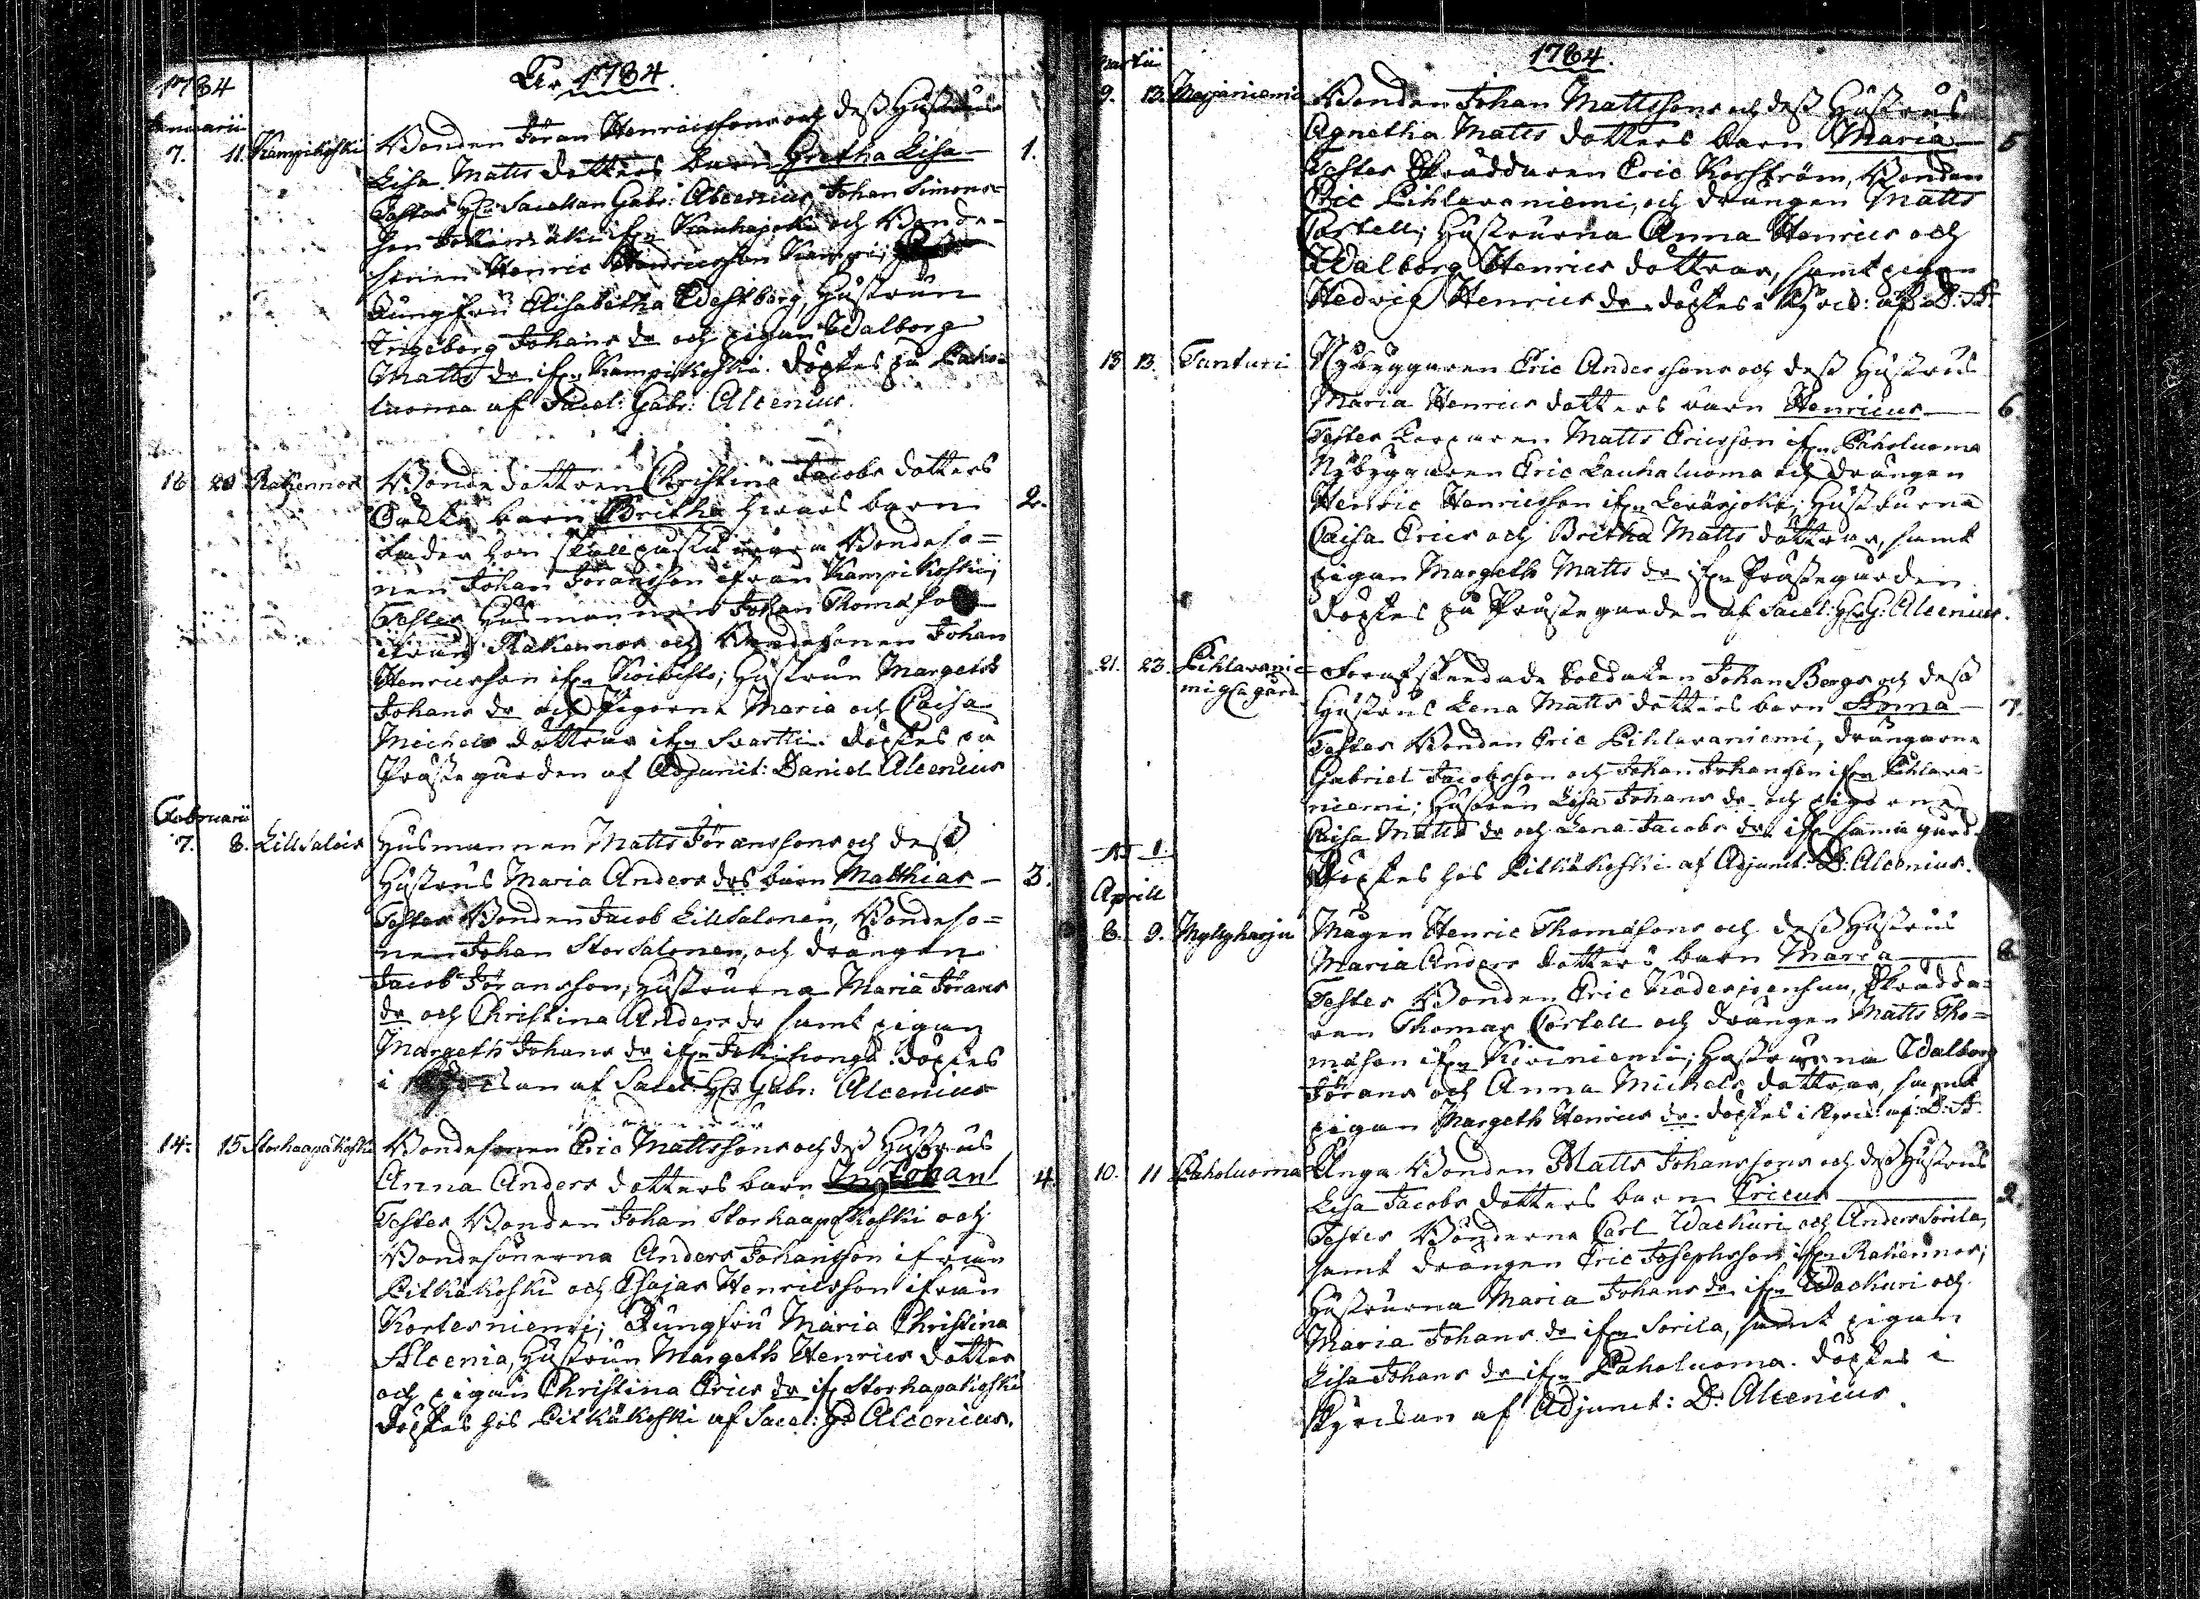 1784
År 1784.
Januarii
7. 11. Kampikoski Bonden Jöran Henricssons och dess Hustrus
Lisa Matts dotters barn Gretha Lisa — 1.
Testes Hr Sacellan Gabr: Alcenius, Johan Simons-
son Jokimäki ifrn Kauhajoki och Bonde-
sonen Henric Henricsson Kampi;
Jungfru Elisabetha Westberg, Hustrun
Ingeborg Johans dr och pigan Walborg
Matts dr ifrn Kampikoski. döptes på Paho-
luoma af Sacel: Gabr: Alcenius.
16 20 Rahennos Bonde dottren Christina Jacobs dotters
Oäckta barn Britha hwars barn
fader hon skall wara Bondeso=
nen Johan Jöransson ifrån Kampikoski;
Testes Husmannen Johan Thomasson
ifrån Rakennos och Bondesonen Johan
Henricsson ifrn Koivisto; Hustrun Margeth
Johans dr och Pigorne Maria och Caisa
Michels döttrar ifrn Svartti. döptes på
Prästegården af Adjunct: Daniel Alcenius
Februarii
7. 8. Lillsalois Husmannen Matts Jöranssons och dess
Hustrus Maria Anders drs barn Matthias — 3.
Testes Bonden Jacob Lillsalonen, Bondeso=
nen Johan Storsalonen, och drängen
Jacob Jöransson, Hustrurna Maria Jörans
dr och Christina Anders dr samt pigan
Margeth Johans dr ifrn Jokihonga. döptes
i Kyrckan af Sacel: Hr Gabr: Alcenius
14. 15 Storhaapakoski Bondesonen Eric Mattssons och dess Hustrus
Anna Anders dotters barn Johan 4.
Testes Bonden Johan Storhaapakoski och
Bondesönerna Anders Johansson ifrån
Pitkäkoski och Esajas Henricsson ifrån
Kortesniemi; Jungfru Maria Christina
Alcenia, Hustrun Margeth Henrics dotter
och pigan Christina Erics dr ifrn Storhapakoski
döptes hos Pitkäkoski af Sacel: Hr Alcenius.
1784.
Martii
9. 13. Marjaniemi Bonden Johan Mattssons och dess Hustrus
Agnetha Matts dotters barn Maria — 5
Testes Skräddaren Eric Korström, Bonden
Eric Pihlavaniemi, och drängen Matts
Cortell; Hustrurna Anna Henrics och
Walborg Henrics döttrar, samt pigan
Hedvig Henrics dr. döptes i Kyrck: af D: A:
13 13. Tanturi Nybyggaren Eric Anderssons och dess Hustrus
Maria Henrics dotters barn Henricus — 6.
Testes Matts Ericsson ifrn Paholuoma
Nybyggaren Eric Lauhaluoma och drängen
Henric Henricsson ifrn Leväsjoki; Hustrurna
Caisa Erics och Britha Matts döttrar, samt
pigan Margeth Matts dr ifrn Prästegården
döptes på Prästegården af Sacel: Hr G: Alcenius.
21. 23. Pihlavanie=
mi gård Förafskedade Soldaten Johan Bergs och dess
Hustrus Lena Matts dotters barn Anna — 7.
Testes Bonden Eric Pihlavaniemi, drängarne
Gabriel Jacobsson och Johan Johansson ifrn Pihlava-
niemi; Hustrun Lisa Johans dr och pigorne
Caisa Matts dr och Lena Jacobs dr ifrn samma gård.
Döptes hos Pitkäkoski af Adjunct: D: Alcenius.
Aprill
8. 9. Myllyharju Mågen Henric Thomassons och dess Hustrus
Maria Anders dotters barn Maria — 8
Testes Bonden Eric Kaderjoensuu, Skrädda-
ren Thomas Cortell och drängen Matts Tho=
masson ifrn Kiviniemi; Hustrurna Walborg
Jörans och Anna Michels döttrar, samt
pigan Margeth Henrics dr. döptes i Kyrck: af: D: A:
10. 11 Paholuoma Unga Bonden Matts Johanssons och dess Hustrus
Lisa Jacobs dotters barn Ericus — 9.
Testes Bönderne Carl Wachuri och Anders Sorila,
samt drängen Eric Josephsson ifrn Rakennos;
Hustrurna Maria Johans dr ifrn Wackuri och
Maria Johans dr ifrn Sorila, samt pigan
Lisa Johans dr ifrn Paholuoma. döptes i
Kyrckan af Adjunct: D: Alcenius.